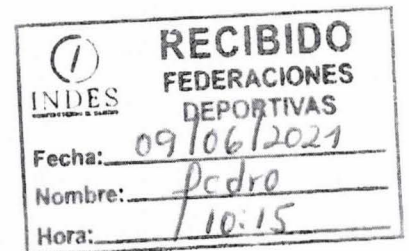 RECIBIDO
FEDERACIONES
INDES
DEPORTIVAS
Fecha: 09/06/2021
Nombre: Pedro
Hora: 10:15